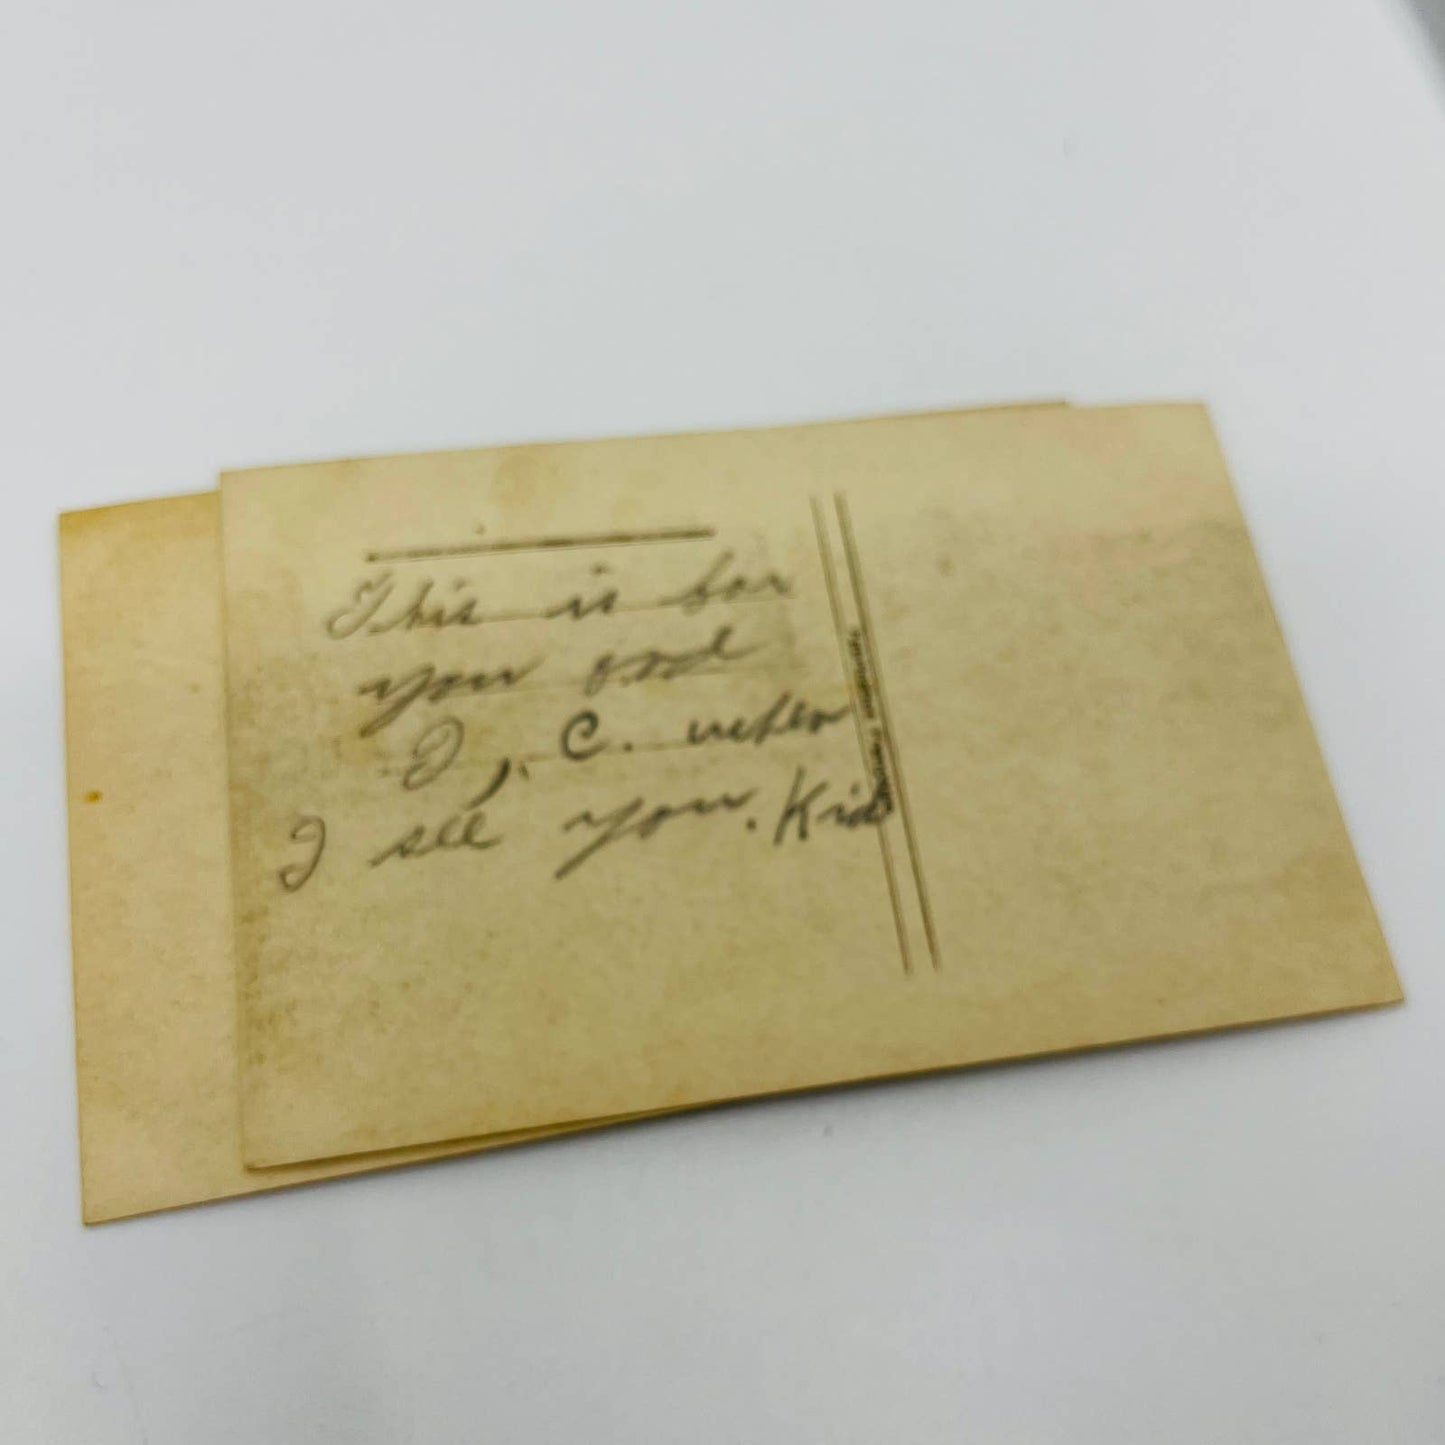 This is for
you and
J, C. when
I see you. Kid